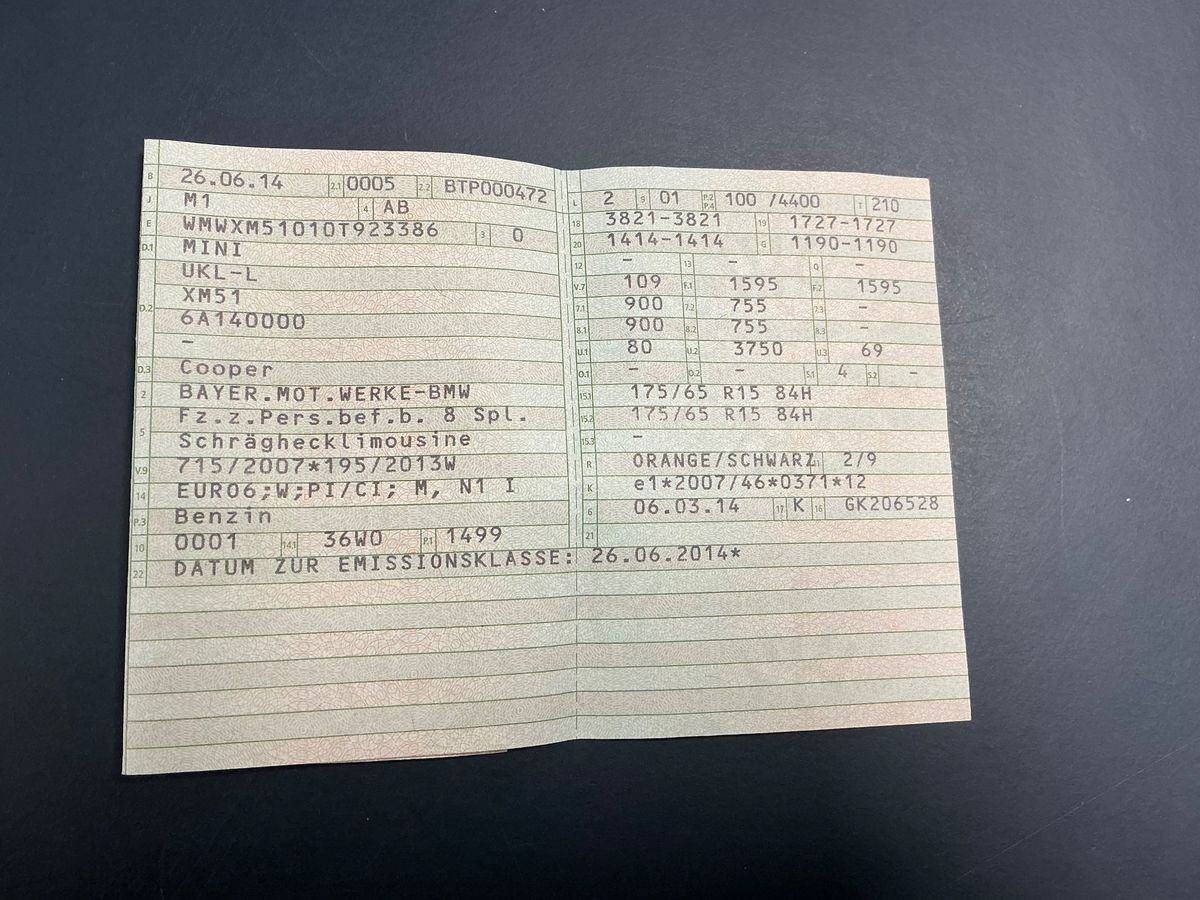 B 26.06.14 2.1 0005 2.2 BTP000472
J M1 4 AB
E WMWXM51010T923386 3 0
D.1 MINI
UKL-L
XM51
D.2 6A140000
–
D.3 Cooper
2 BAYER.MOT.WERKE-BMW
Fz.z.Pers.bef.b. 8 Spl.
5 Schräghecklimousine
V.9 715/2007*195/2013W
14 EURO6;W;PI/CI; M, N1 I
P.3 Benzin
10 0001 14.1 36W0 P.1 1499
22 DATUM ZUR EMISSIONSKLASSE: 26.06.2014*
L 2 9 01 P.2 P.4 100 /4400 T 210
18 3821-3821 19 1727-1727
20 1414-1414 G 1190-1190
12 – 13 – Q –
V.7 109 F.1 1595 F.2 1595
7.1 900 7.2 755 7.3 –
8.1 900 8.2 755 8.3 –
U.1 80 U.2 3750 U.3 69
O.1 – O.2 – S.1 4 S.2 –
15.1 175/65 R15 84H
15.2 175/65 R15 84H
15.3 –
R ORANGE/SCHWARZ 11 2/9
K e1*2007/46*0371*12
6 06.03.14 17 K 16 GK206528
21